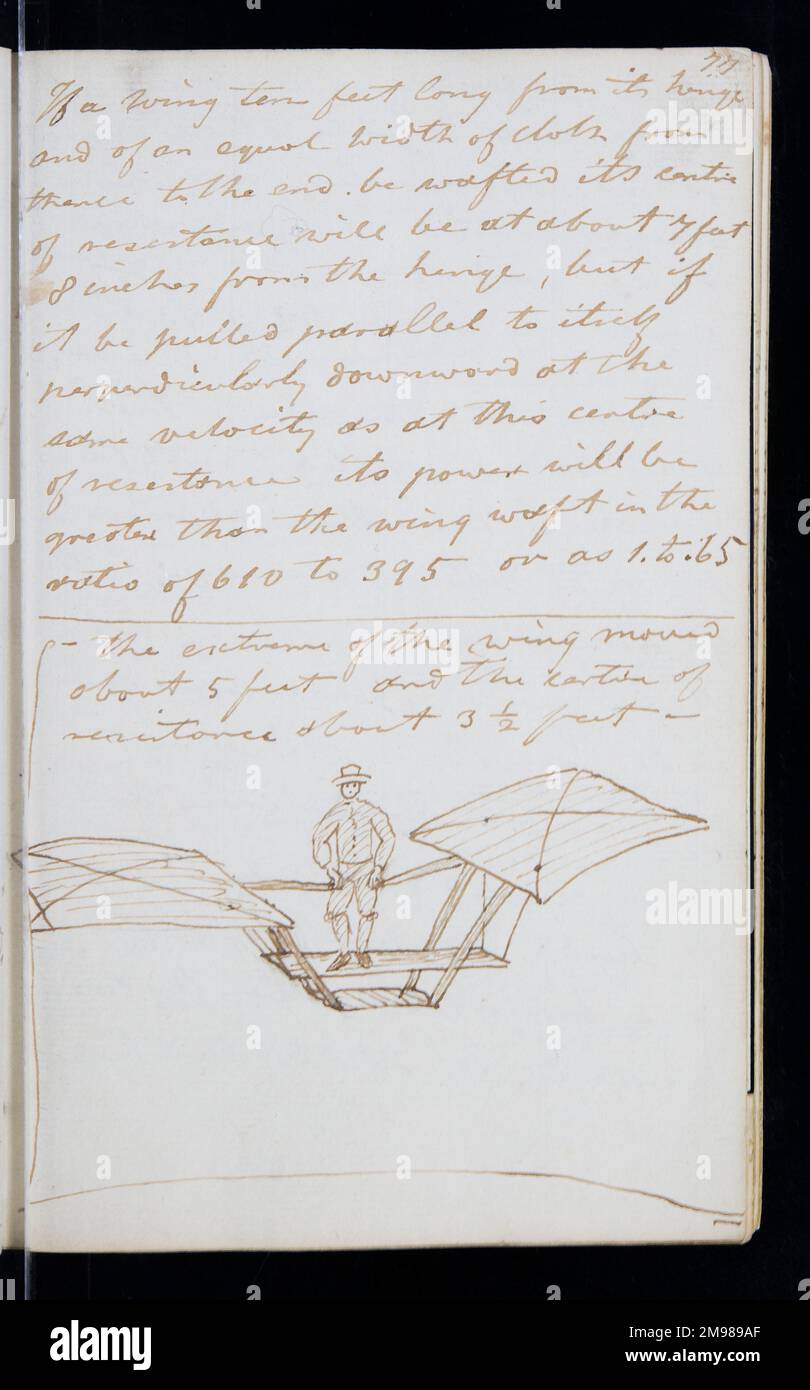 77
If a wing ten feet long from its hinge
and of an equal width of cloth from
thence to the end. be wafted its centre
of resistance will be at about 7 feet
8 inches from the hinge, but if
it be pulled parallel to itself
perpendicularly downward at the
same velocity as at this centre
of resistance its power will be
greater than the wing waft in the
ratio of 610 to 395 or as 1. to .65
- the extreme of the wing moved
about 5 feet and the centre of
resistance about 3 1/2 feet -
alamy
Image ID: 2M989AF
www.alamy.com